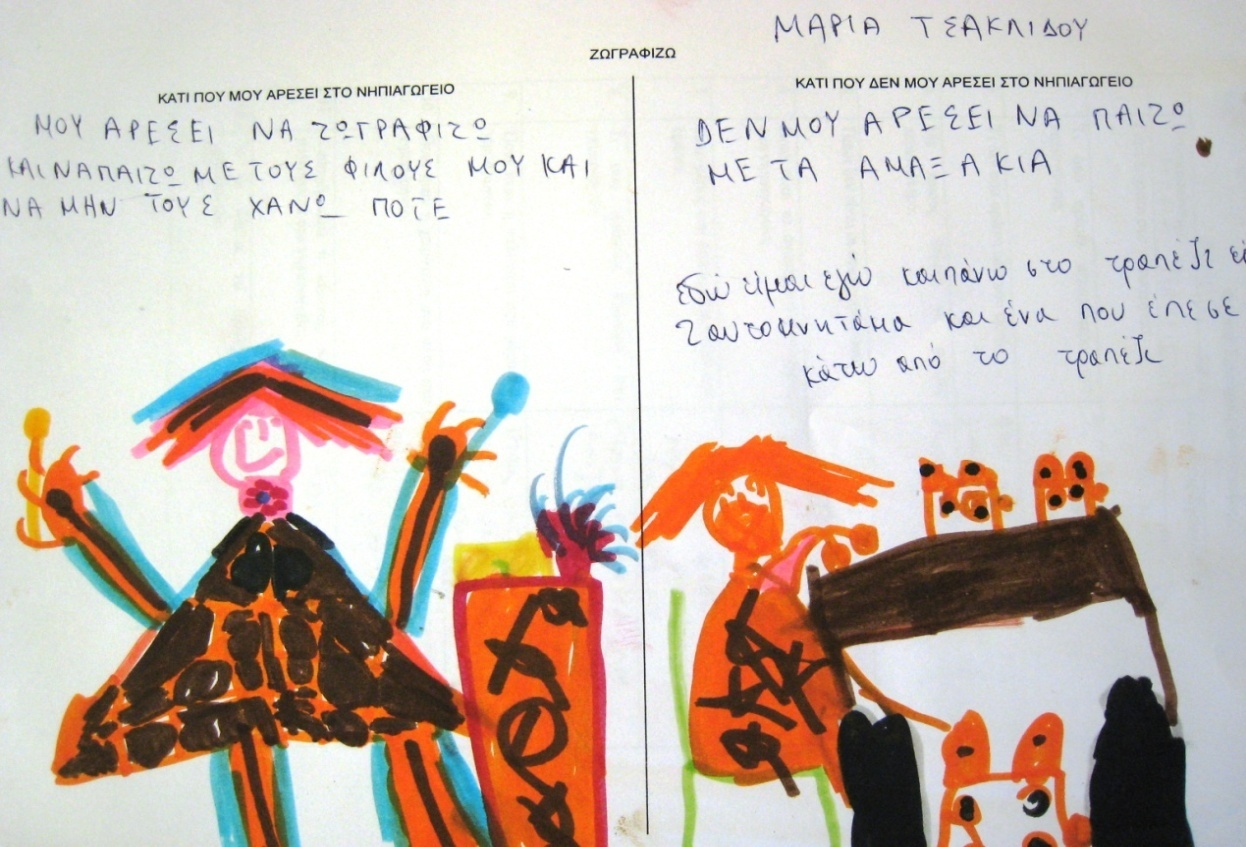 ΜΑΡΙΑ ΤΣΑΚΛΙΔΟΥ
ΖΩΓΡΑΦΙΖΩ
ΚΑΤΙ ΠΟΥ ΜΟΥ ΑΡΕΣΕΙ ΣΤΟ ΝΗΠΙΑΓΩΓΕΙΟ
ΜΟΥ ΑΡΕΣΕΙ ΝΑ ΖΩΓΡΑΦΙΖΩ
ΚΑΙ ΝΑ ΠΑΙΖΩ ΜΕ ΤΟΥΣ ΦΙΛΟΥΣ ΜΟΥ ΚΑΙ
ΝΑ ΜΗΝ ΤΟΥΣ ΧΑΝΩ ΠΟΤΕ
ΚΑΤΙ ΠΟΥ ΔΕΝ ΜΟΥ ΑΡΕΣΕΙ ΣΤΟ ΝΗΠΙΑΓΩΓΕΙΟ
ΔΕΝ ΜΟΥ ΑΡΕΣΕΙ ΝΑ ΠΑΙΖΩ
ΜΕ ΤΑ ΑΜΑΞΑΚΙΑ
εδώ είμαι εγώ και πάνω στο τραπέζι
2 αυτοκινητάκια και ένα που έπεσε
κάτω από το τραπέζι